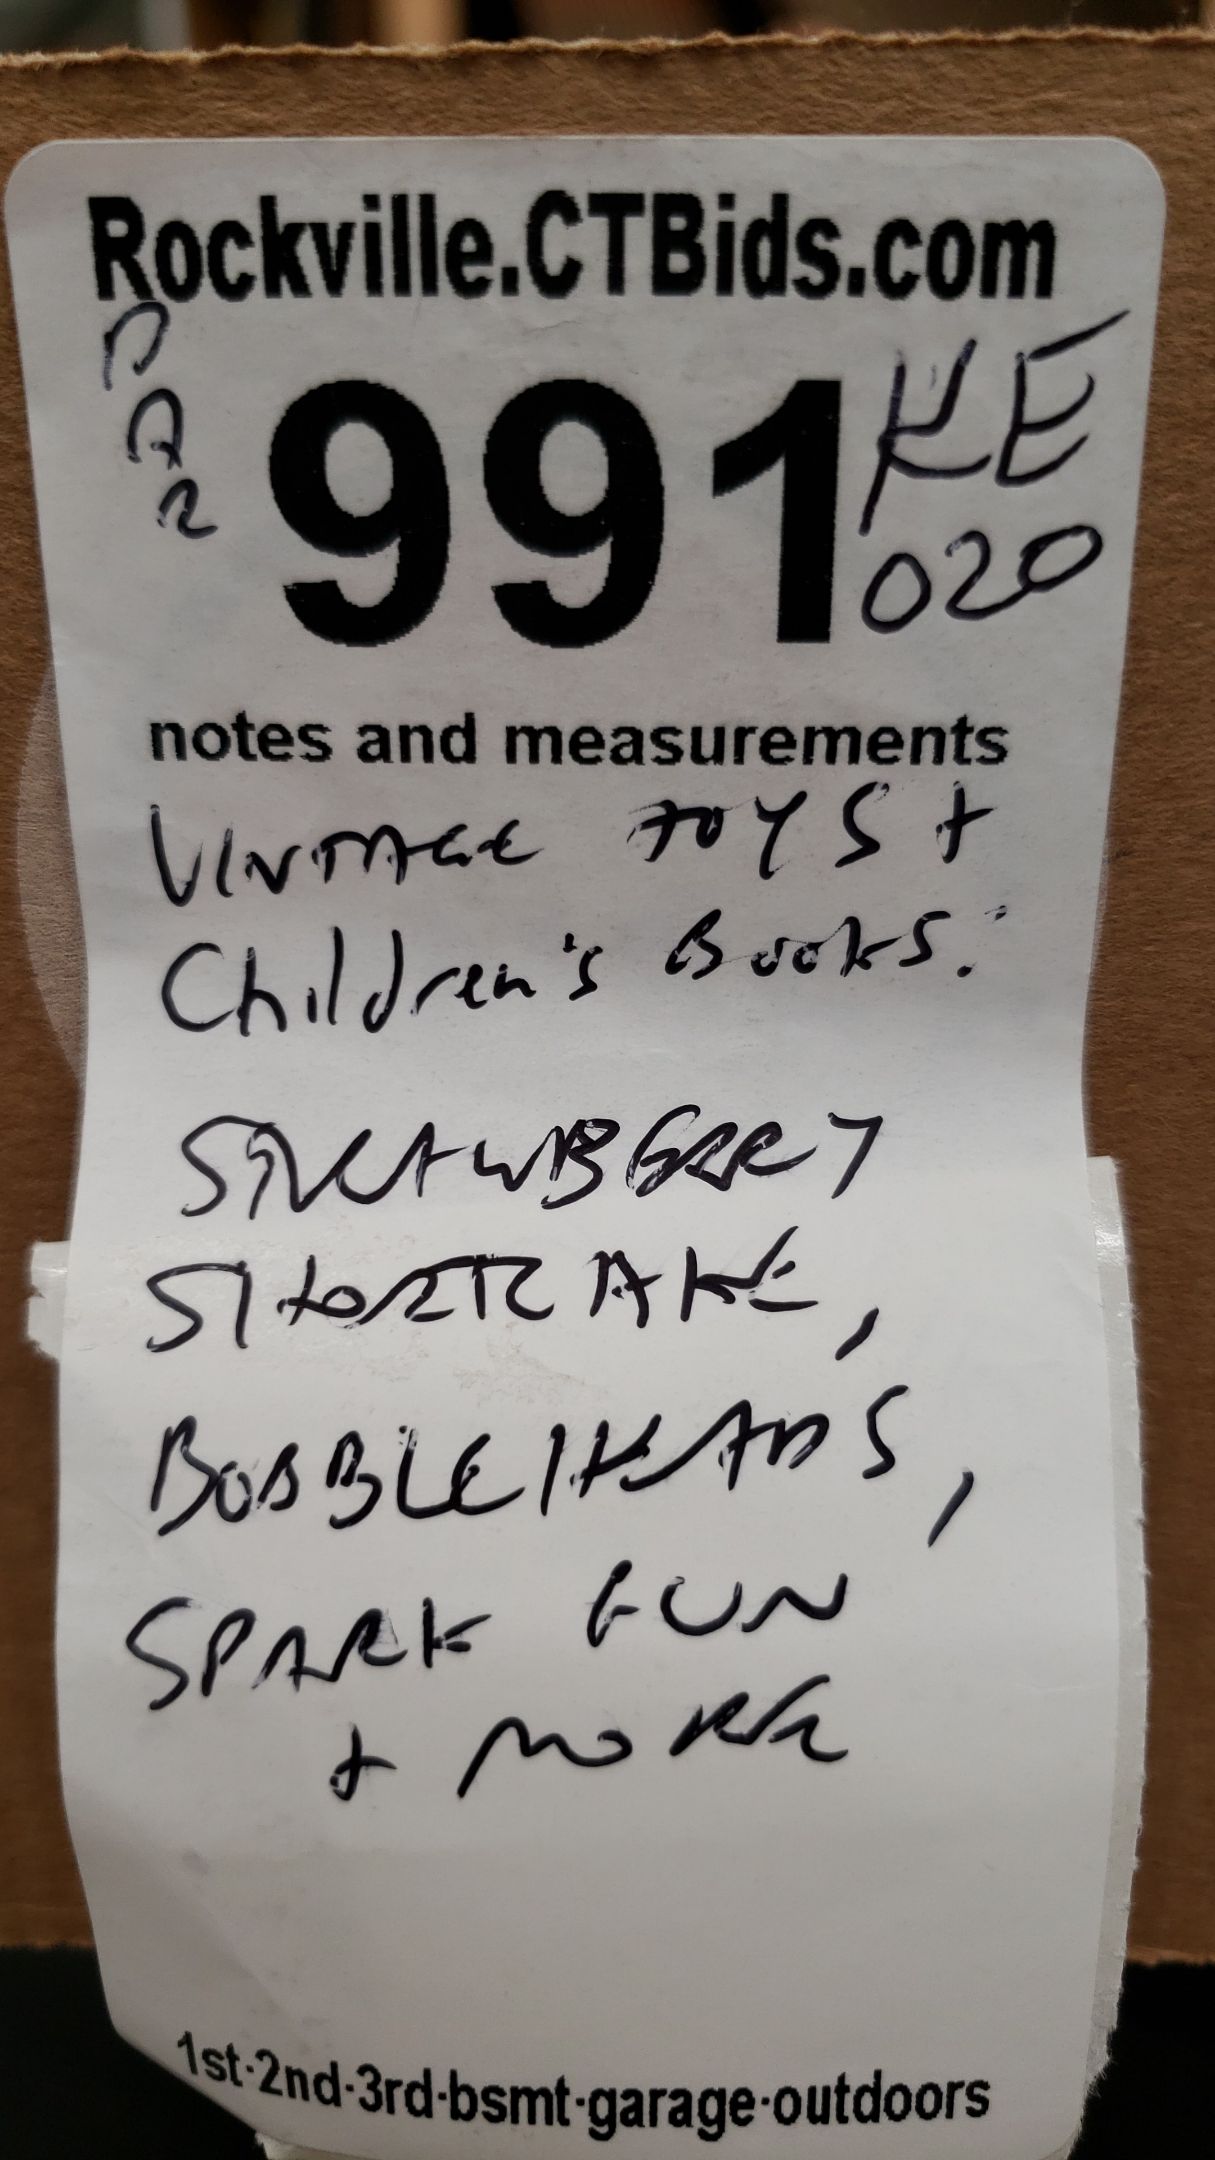 Rockville.CTBids.com
991
KE
020
notes and measurements
VINTAGE TOYS +
Children's Books:
STRAWBERRY
SHORTCAKE,
BOBBLEHEADS,
SPARK GUN
+ MORE
1st·2nd·3rd·bsmt·garage·outdoors